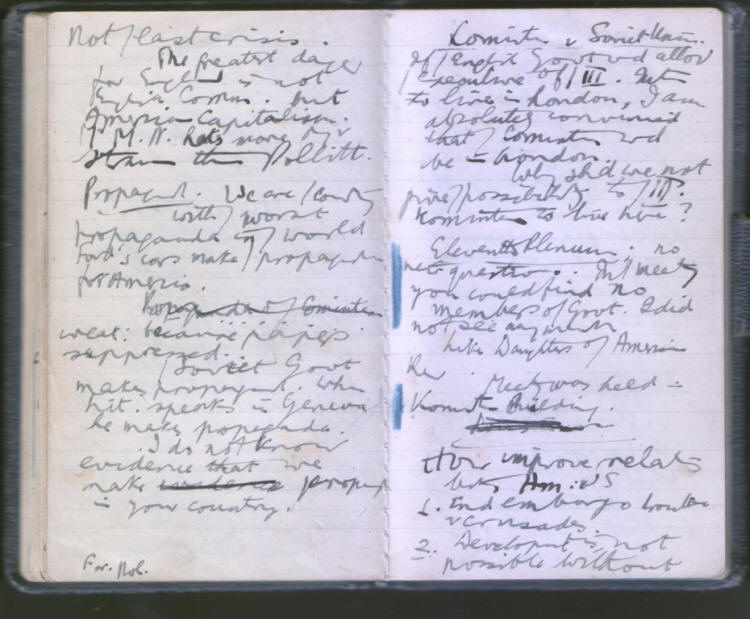 Not / last crisis.
The greatest danger
for England is not
English Comm. but
American Capitalism.
M. N. hats more
than Pollitt.
Propagand. We are / country
with / worst
propaganda in / world
Ford's cars make / propaganda
for America.
Propaganda of / Comintern
weak: because papers
suppressed.
Soviet Govt
makes propagand. When
Lit. speaks in Geneva
he makes propaganda.
I do not know
evidence that we
make propag
in your country.
For. Pol.
Comintn v Soviet Union.
If / English Govt wd allow
/ Executive of / III. Int
to live in London, I am
absolutely convinced
that / Comintn wd
be in London.
Why shd we not
give / possibility to / III.
Komintn to live here?
Eleventh Plenum: no
new question. In / meetg
you could find no
members of Govt. I did
not see any much
like Daughters of American
Rev
Meetg was held in
Komintn Building.
How improve relats
betw Am. & US
1. End embargo
& crusades.
2. Development is not
possible without